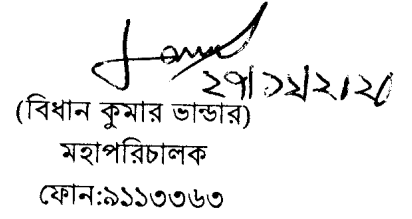 (বিধান কুমার ভান্ডার)
মহাপরিচালক
ফোন:৯১১৩৩৬৩